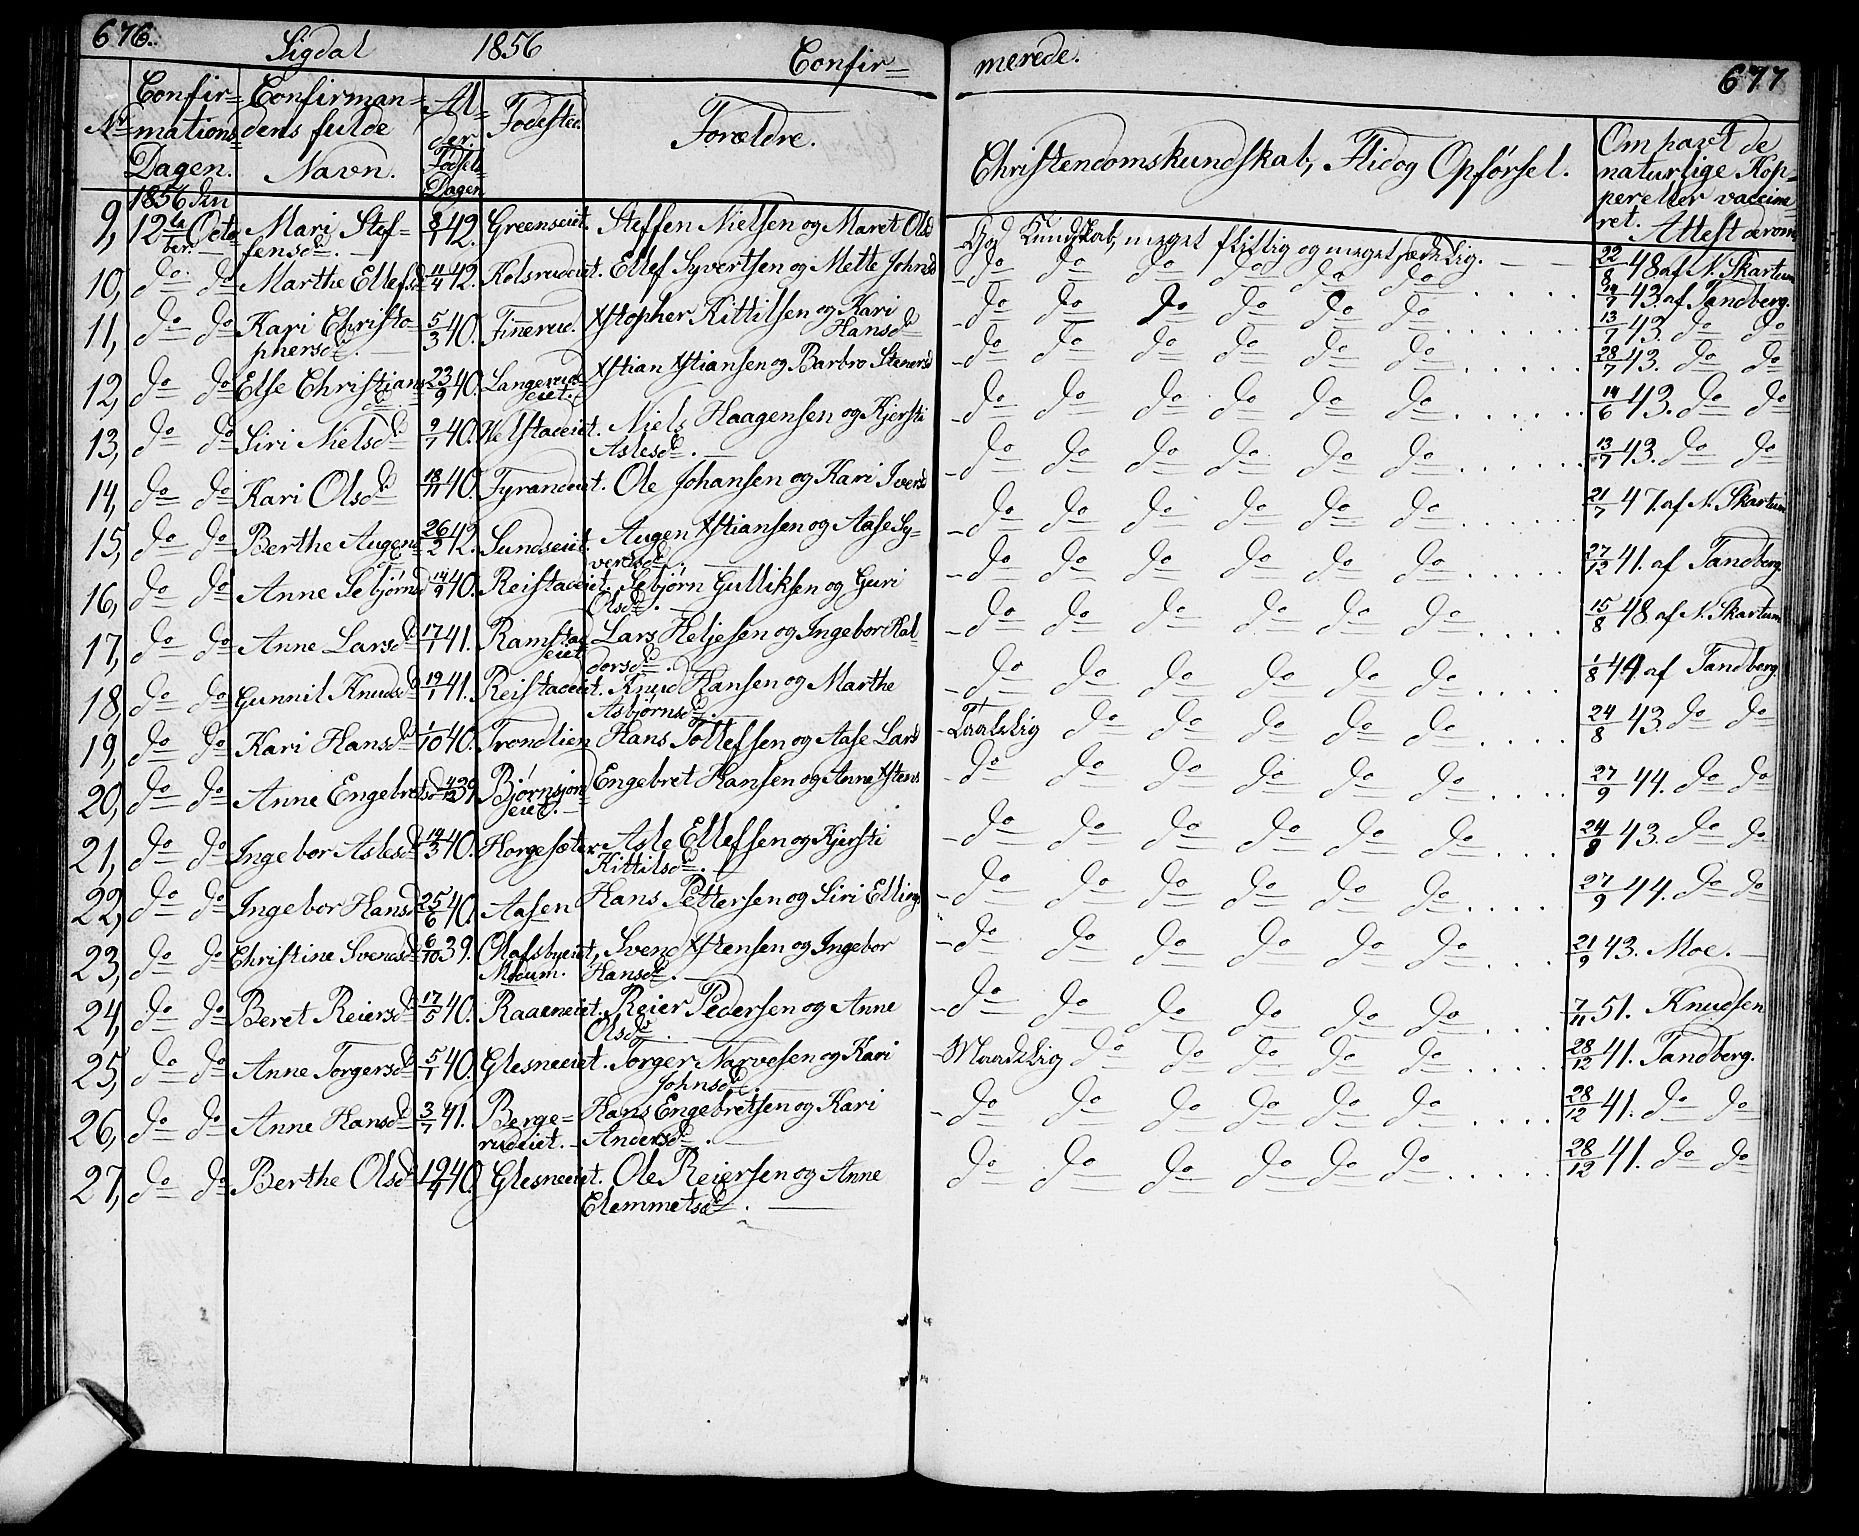 676. Sigdal 1856 Confir=
Nr Confir=mations Dagen. Confirman=dens fulde Navn. Al=der Fødsels Dagen Fødested. Forældre.
1856 den
9, 12te Octo ber. Mari Stef= fensd. 8/1 42. Greenseiet. Steffen Nielsen og Maret Olsd
10, do do Marthe Ellefsd 11/4 42. Kolsrudeiet. Ellef Syvertsen og Mette Johnsd
11, do do Kari Christo= phersd. 5/3 40. Finnerud. Xstopher Kittilsen og Kari Hansd
12, do do Else Christians d 23/9 40. Langerud= eiet. Xstian Xstiansen og Barbro Steners
13, do do Siri Nielsd 9/7 40. Helstadeiet. Niels Haagensen og Kjersti Aslesd.
14, do do Kari Olsd 18/11 40. Tyrandeiet. Ole Johansen og Kari Iversd
15, do do Berthe Augensd 26/2 42. Sundseiet. Augen Xstiansen og Aase Sy= versd.
16, do do Anne Sebjørnsd 14/9 40. Reistadeiet. Sebjørn Gulliksen og Guri Olsd.
17, do do Anne Larsd 17/7 41. Ramstad eiet Lars Heljesen og Ingebor Hal= dorsd.
18, do do Gunnil Knudsd 19/1 41. Reistadeiet. Knud Hansen og Marthe Asbjørnsd.
19, do do Kari Hansd 1/10 40. Trondlien Hans Tollefsen og Aase Larsd
20, do do Anne Engebretsd 39. Bjørnsjøn= eiet. Engebret Hansen og Anne Xstens
21, do do Ingebor Aslesd 19/3 40. Horgesæter Asle Ellefsen og Kjersti Kittilsd.
22, do do Ingebor Hansd 25/6 40. Aasen Hans Pettersen og Siri Elling
23, do do Christine Svendsd 6/10 39. Olafsbyeiet, Modum. Svend Xstensen og Ingebor Hansd.
24, do do Beret Reiersd 17/5 40. Raaeneiet. Reier Pedersen og Anne Olsd.
25, do do Anne Torgersd 5/1 40. Glesneeiet. Torger Narvesen og Kari Johnsd
26, do do Anne Hansd 3/7 41. Berge= rudeiet. Hans Engebretsen og Kari Andersd.
27, do do Berthe Olsd 19/4 40. Glesneeiet. Ole Reiersen og Anne Clemmetsd.
merede. 677
Christendomskundskab, Flid og Opførsel. Om havt de naturlige Kop= per eller vaccine= ret. Attest derom
God Kundskab, meget flittig og meget sædelig. 22/8 48 af N. Skartum
do do do do do do 19/7 43. af Tandberg.
do do do do do do 13/7 43. do do
do do do do do do 28/7 43. do do
do do do do do do 14/6 43. do do
do do do do do do 13/7 43. do do
do do do do do do 21/7 47. af N. Skartum
do do do do do do 27/12 41. af Tandberg.
do do do do do do 15/8 48 af N. Skartum
do do do do do do 1/8 44 af Tandberg
Taalelig do do do do do 24/8 43. do do
do do do do do do 27/9 44. do do
do do do do do do 24/8 43. do do
do do do do do do 27/9 44. do do
do do do do do do 21/9 43. Moe.
do do do do do do 7/11 51. Knudsen
Maadelig do do do do do 28/12 41. Tandberg.
do do do do do do 28/12 41. do do
do do do do do do 28/12 41. do do